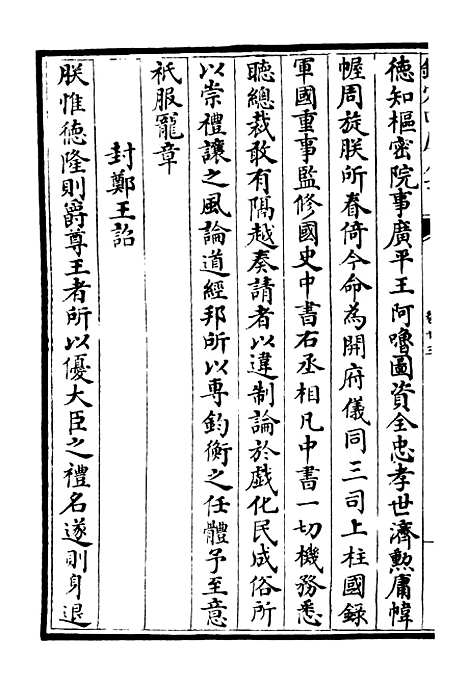 德知樞密院事廣平王阿嚕圖資全忠孝世濟勲庸幃
幄周旋朕所眷倚今命為開府儀同三司上柱國録
軍國重事監修國史中書右丞相凡中書一切機務悉
聽總裁敢有隔越奏請者以違制論於戯化民成俗所
以崇禮讓之風論道經邦所以專鈞衡之任體予至意
祇服寵章
封鄭王詔
朕惟德隆則爵尊王者所以優大臣之禮名遂則身退